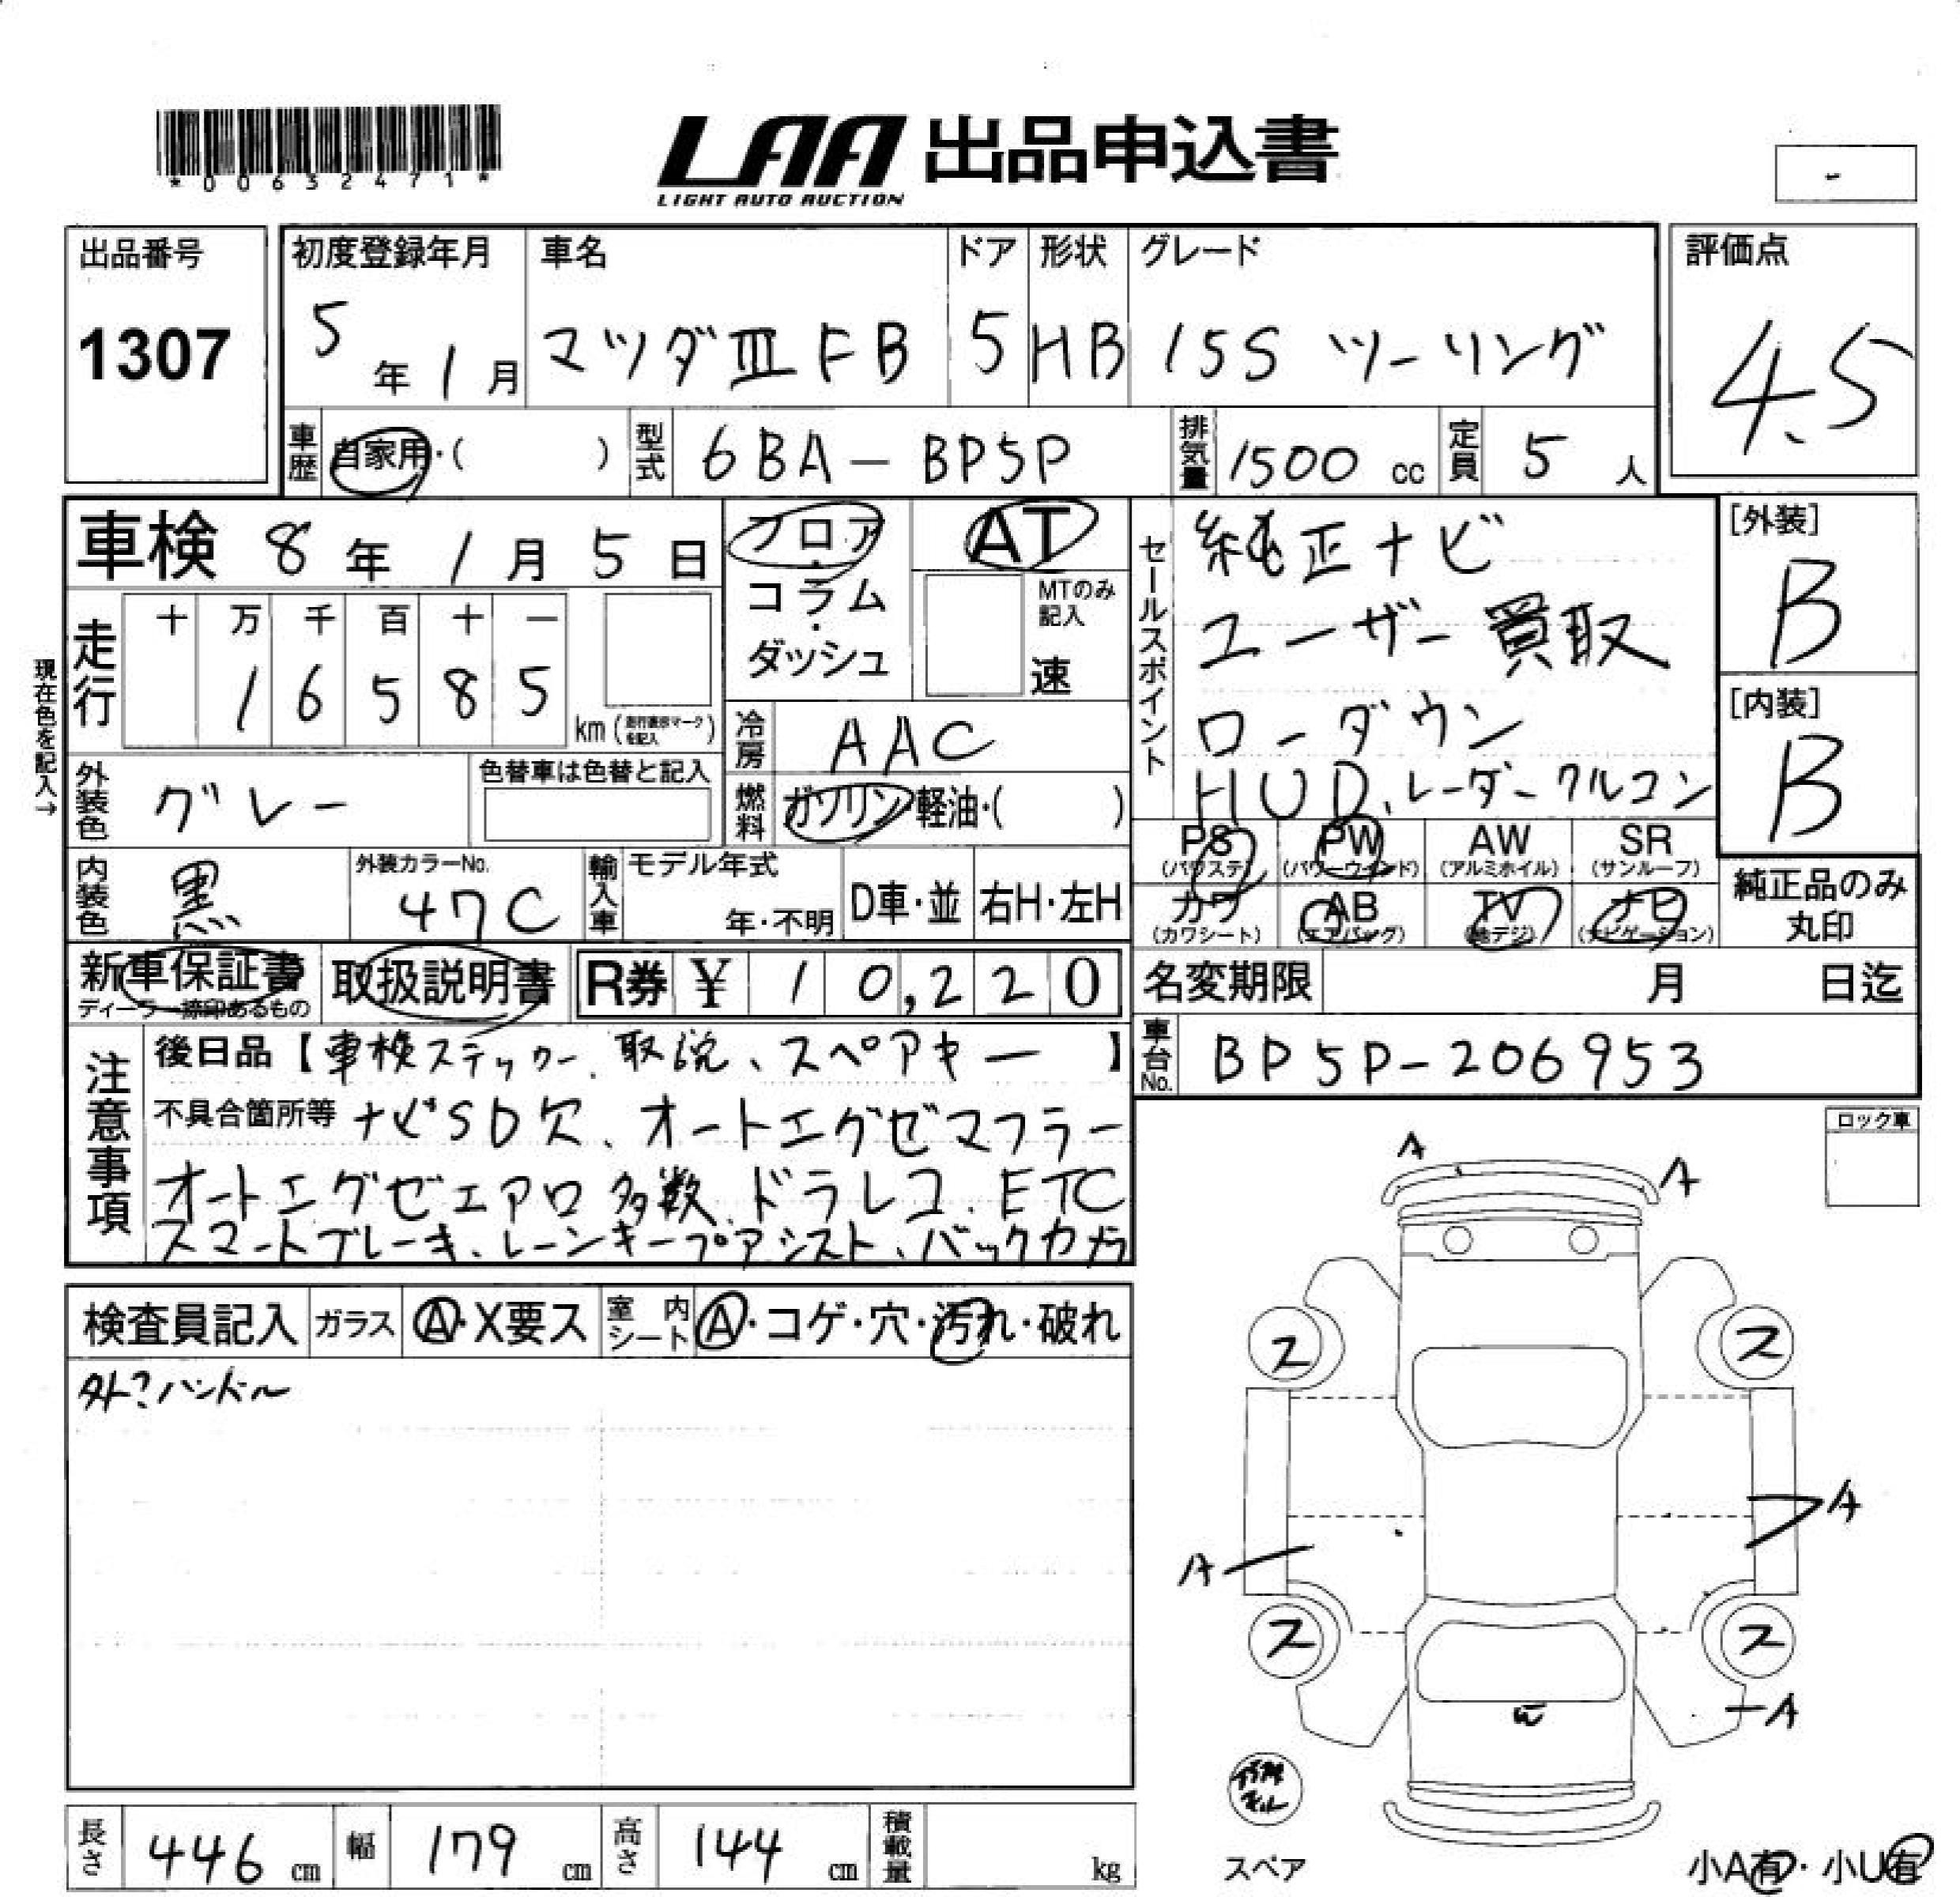 *00632471*
LAA 出品申込書
LIGHT AUTO AUCTION
-
出品番号
1307
初度登録年月
5年1月
車名
マツダⅢFB
ドア
5
形状
HB
グレード
15S ツーリング
評価点
4.5
車歴 自家用・( )
型式 6BA-BP5P
排気量 1500 cc
定員 5 人
車検 8年1月5日
現在色を記入→
走行
十 万 千 百 十 一
1 6 5 8 5
km(走行表示マークを記入)
フロア・コラム・ダッシュ
AT
MTのみ記入
速
冷房 AAC
燃料 ガソリン・軽油・( )
セールスポイント
純正ナビ
ユーザー買取
ローダウン
HUD、レーダークルコン
[外装]
B
[内装]
B
外装色 グレー
色替車は色替と記入
内装色 黒
外装カラーNo.
47C
輸入車
モデル年式
年・不明
D車・並
右H・左H
PS (パワステ)
PW (パワーウインド)
AW (アルミホイル)
SR (サンルーフ)
カワ (カワシート)
AB (エアバッグ)
TV (地デジ)
ナビ (ナビゲーション)
純正品のみ丸印
新車保証書
ディーラー捺印あるもの
取扱説明書
R券 ¥ 10,220
名変期限 月 日迄
車台No. BP5P-206953
注意事項
後日品【車検ステッカー、取説、スペアキー】
不具合箇所等 ナビSD欠、オートエグゼマフラー
オートエグゼエアロ多数、ドラレコ、ETC
スマートブレーキ、レーンキープアシスト、バックカメラ
ロック車
検査員記入
ガラス Ⓐ・X要ス
室内シート Ⓐ・コゲ・穴・汚れ・破れ
外?ハンドル
A
A
ス
ス
A
A
ス
ス
A
W
スペア
小A有・小U有
長さ 446 cm
幅 179 cm
高さ 144 cm
積載量 kg